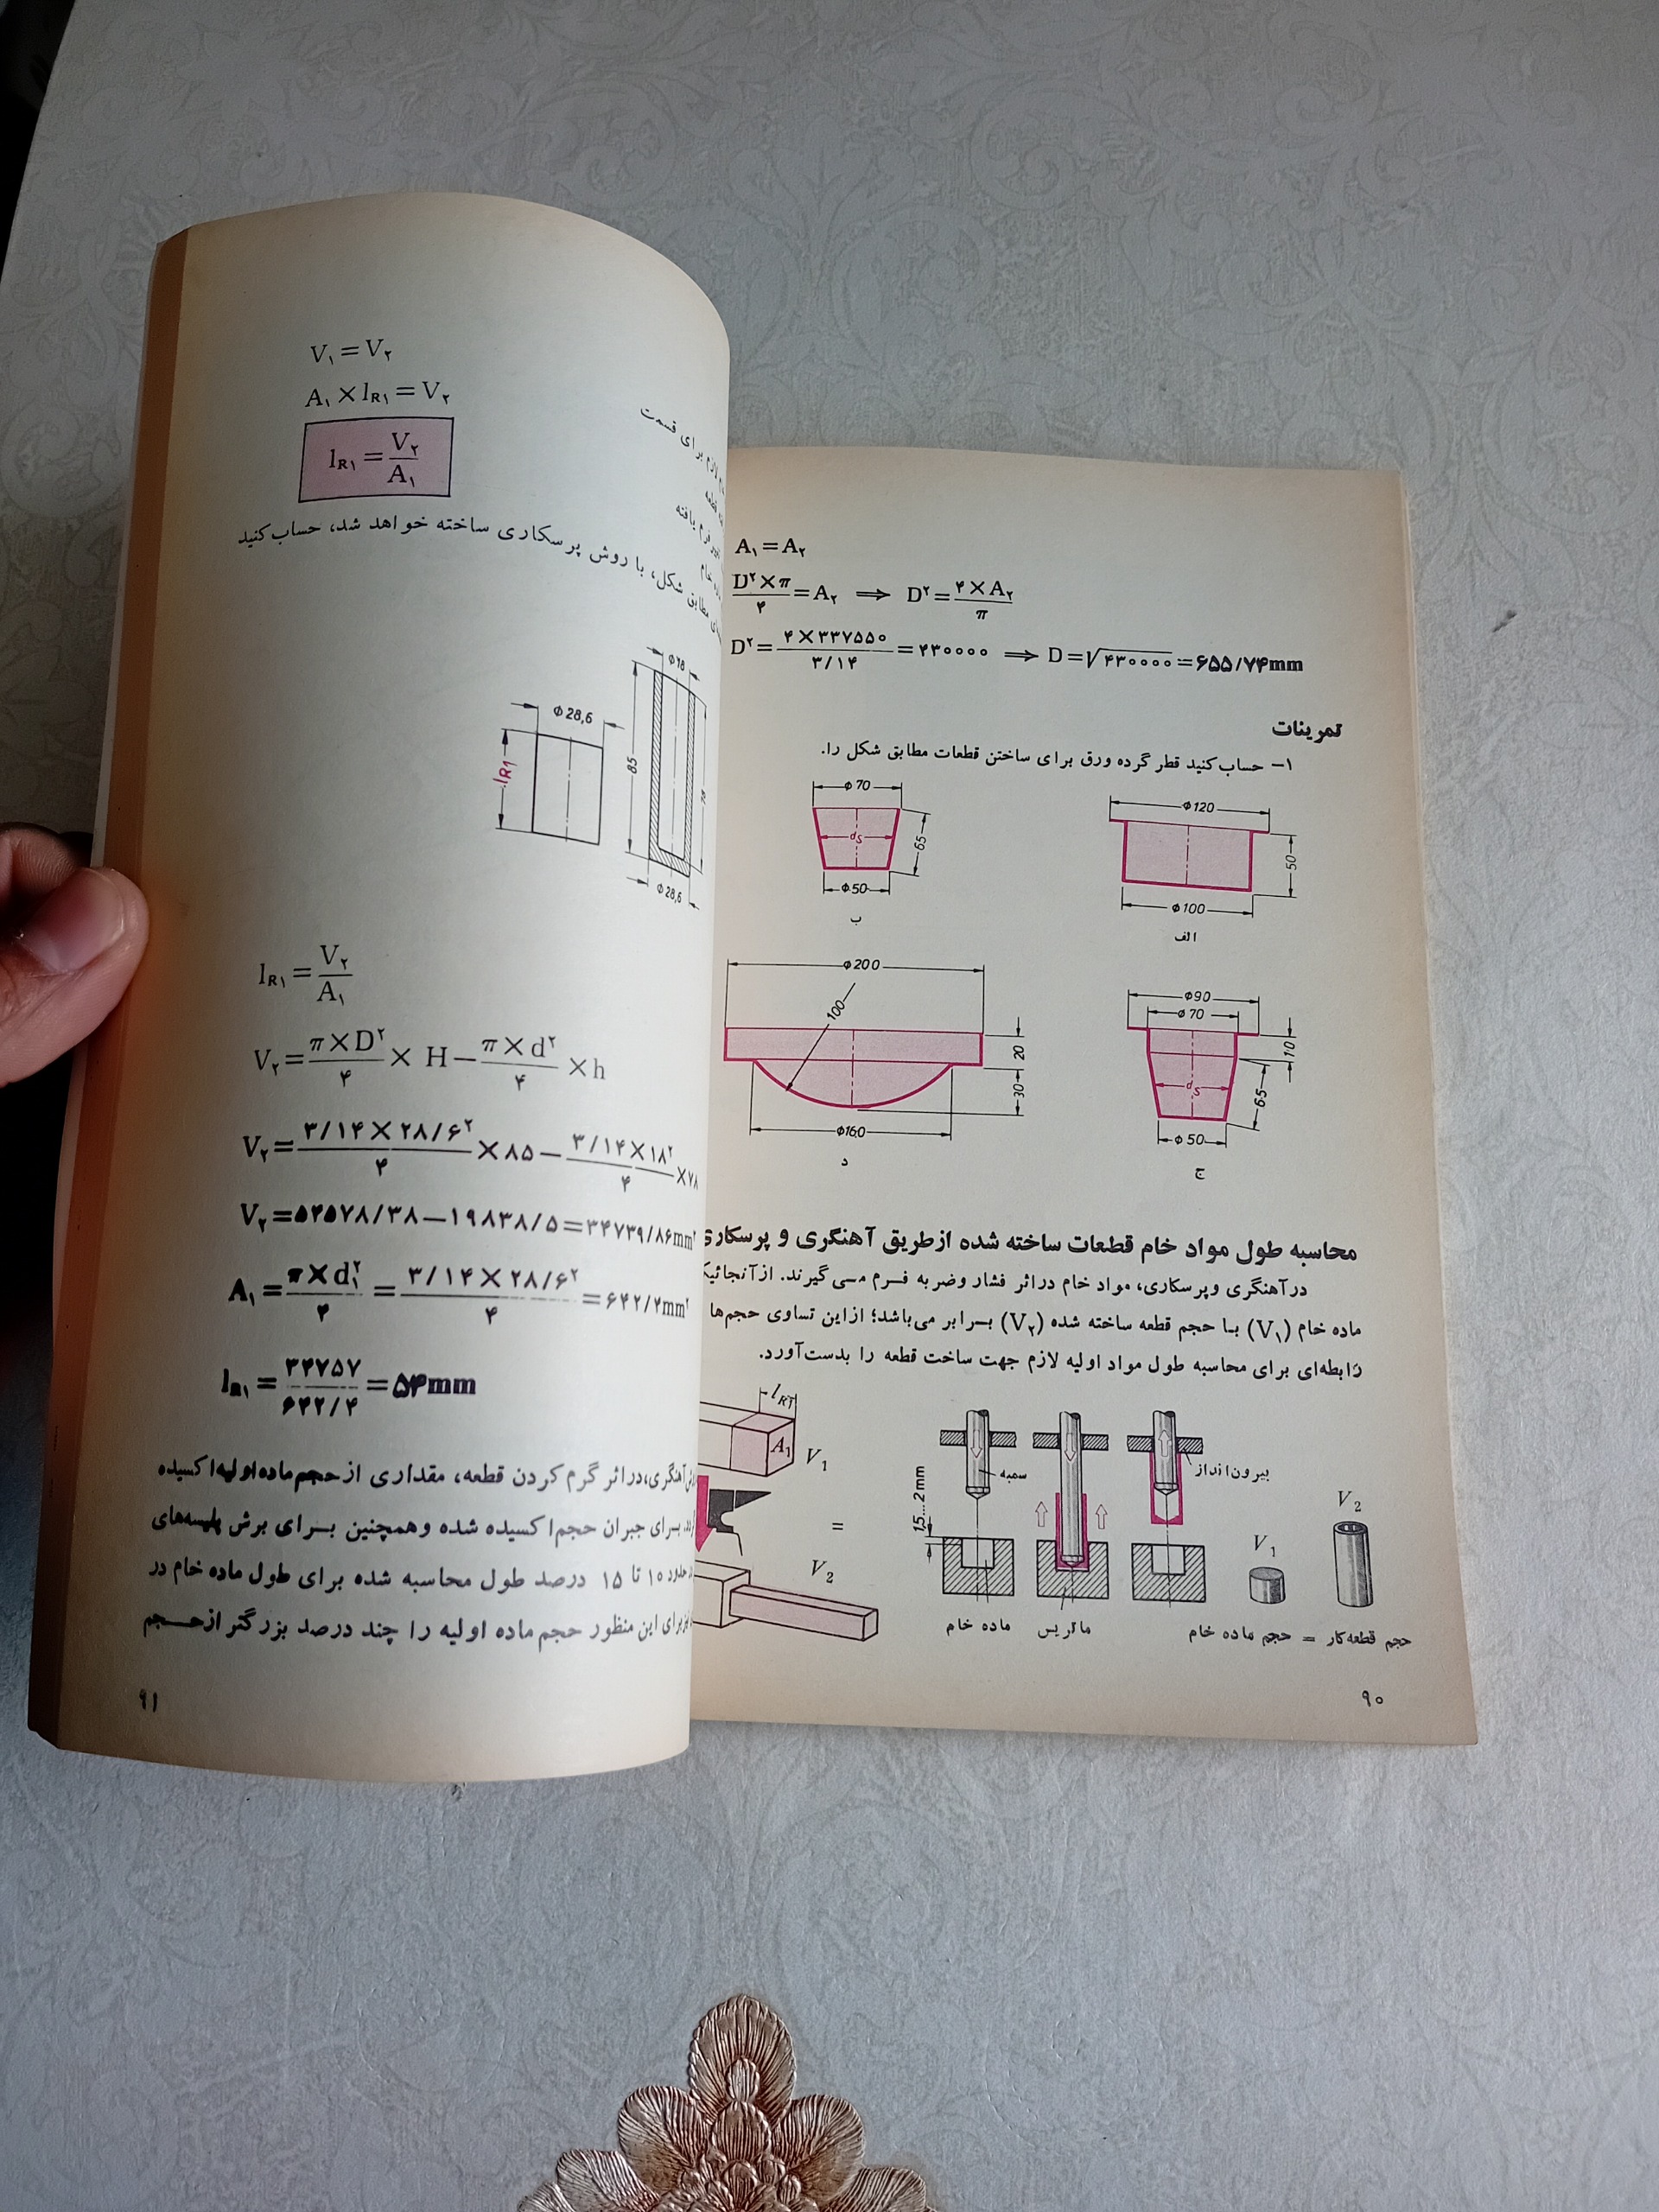 A₁ = A₂
D²×π/۴ = A₂ ⟹ D² = ۴×A₂/π
D² = ۴×۳۳۷۵۵۰/۳/۱۴ = ۴۳۰۰۰۰ ⟹ D = √۴۳۰۰۰۰ = ۶۵۵/۷۴mm
تمرینات
۱– حساب کنید قطر گرده ورق برای ساختن قطعات مطابق شکل را.
ϕ120
50
ϕ100
الف
ϕ70
ds
65
ϕ50
ب
ϕ90
ϕ70
10
ds
65
ϕ50
ج
ϕ200
100
20
30
ϕ160
د
محاسبه طول مواد خام قطعات ساخته شده از طریق آهنگری و پرسکاری
در آهنگری و پرسکاری، مواد خام در اثر فشار و ضربه فرم می گیرند. از آنجائیک
ماده خام (V₁) با حجم قطعه ساخته شده (V₂) برابر می‌باشد؛ از این تساوی حجم‌ها
رابطه‌ای برای محاسبه طول مواد اولیه لازم جهت ساخت قطعه را بدست آورد.
lR1
A1
V1
=
V2
1,5...2mm
سمبه
بیرون انداز
V1
V2
ماده خام
ماتریس
حجم قطعه کار = حجم ماده خام
۹۰
V₁ = V₂
A₁ × lR₁ = V₂
lR₁ = V₂/A₁
برای قسمت
فرم یافته
خام
مطابق شکل، با روش پرسکاری ساخته خواهد شد، حساب کنید
ϕ18
ϕ28,6
lR1
85
78
ϕ28,6
lR₁ = V₂/A₁
V₂ = π×D²/۴ × H – π×d²/۴ × h
V₂ = ۳/۱۴×۲۸/۶²/۴ × ۸۵ – ۳/۱۴×۱۸²/۴ × ۷۸
V₂ = ۵۴۵۷۸/۳۸ – ۱۹۸۳۸/۵ = ۳۴۷۳۹/۸۶mm³
A₁ = π×d₁²/۴ = ۳/۱۴×۲۸/۶²/۴ = ۶۴۲/۴mm²
lR₁ = ۳۴۷۵۷/۶۴۲/۴ = ۵۴mm
آهنگری، در اثر گرم کردن قطعه، مقداری از حجم ماده اولیه اکسیده
برای جبران حجم اکسیده شده و همچنین برای برش پلیسه‌های
حدود ۱۰ تا ۱۵ درصد طول محاسبه شده برای طول ماده خام در
برای این منظور حجم ماده اولیه را چند درصد بزرگتر از حجم
۹۱